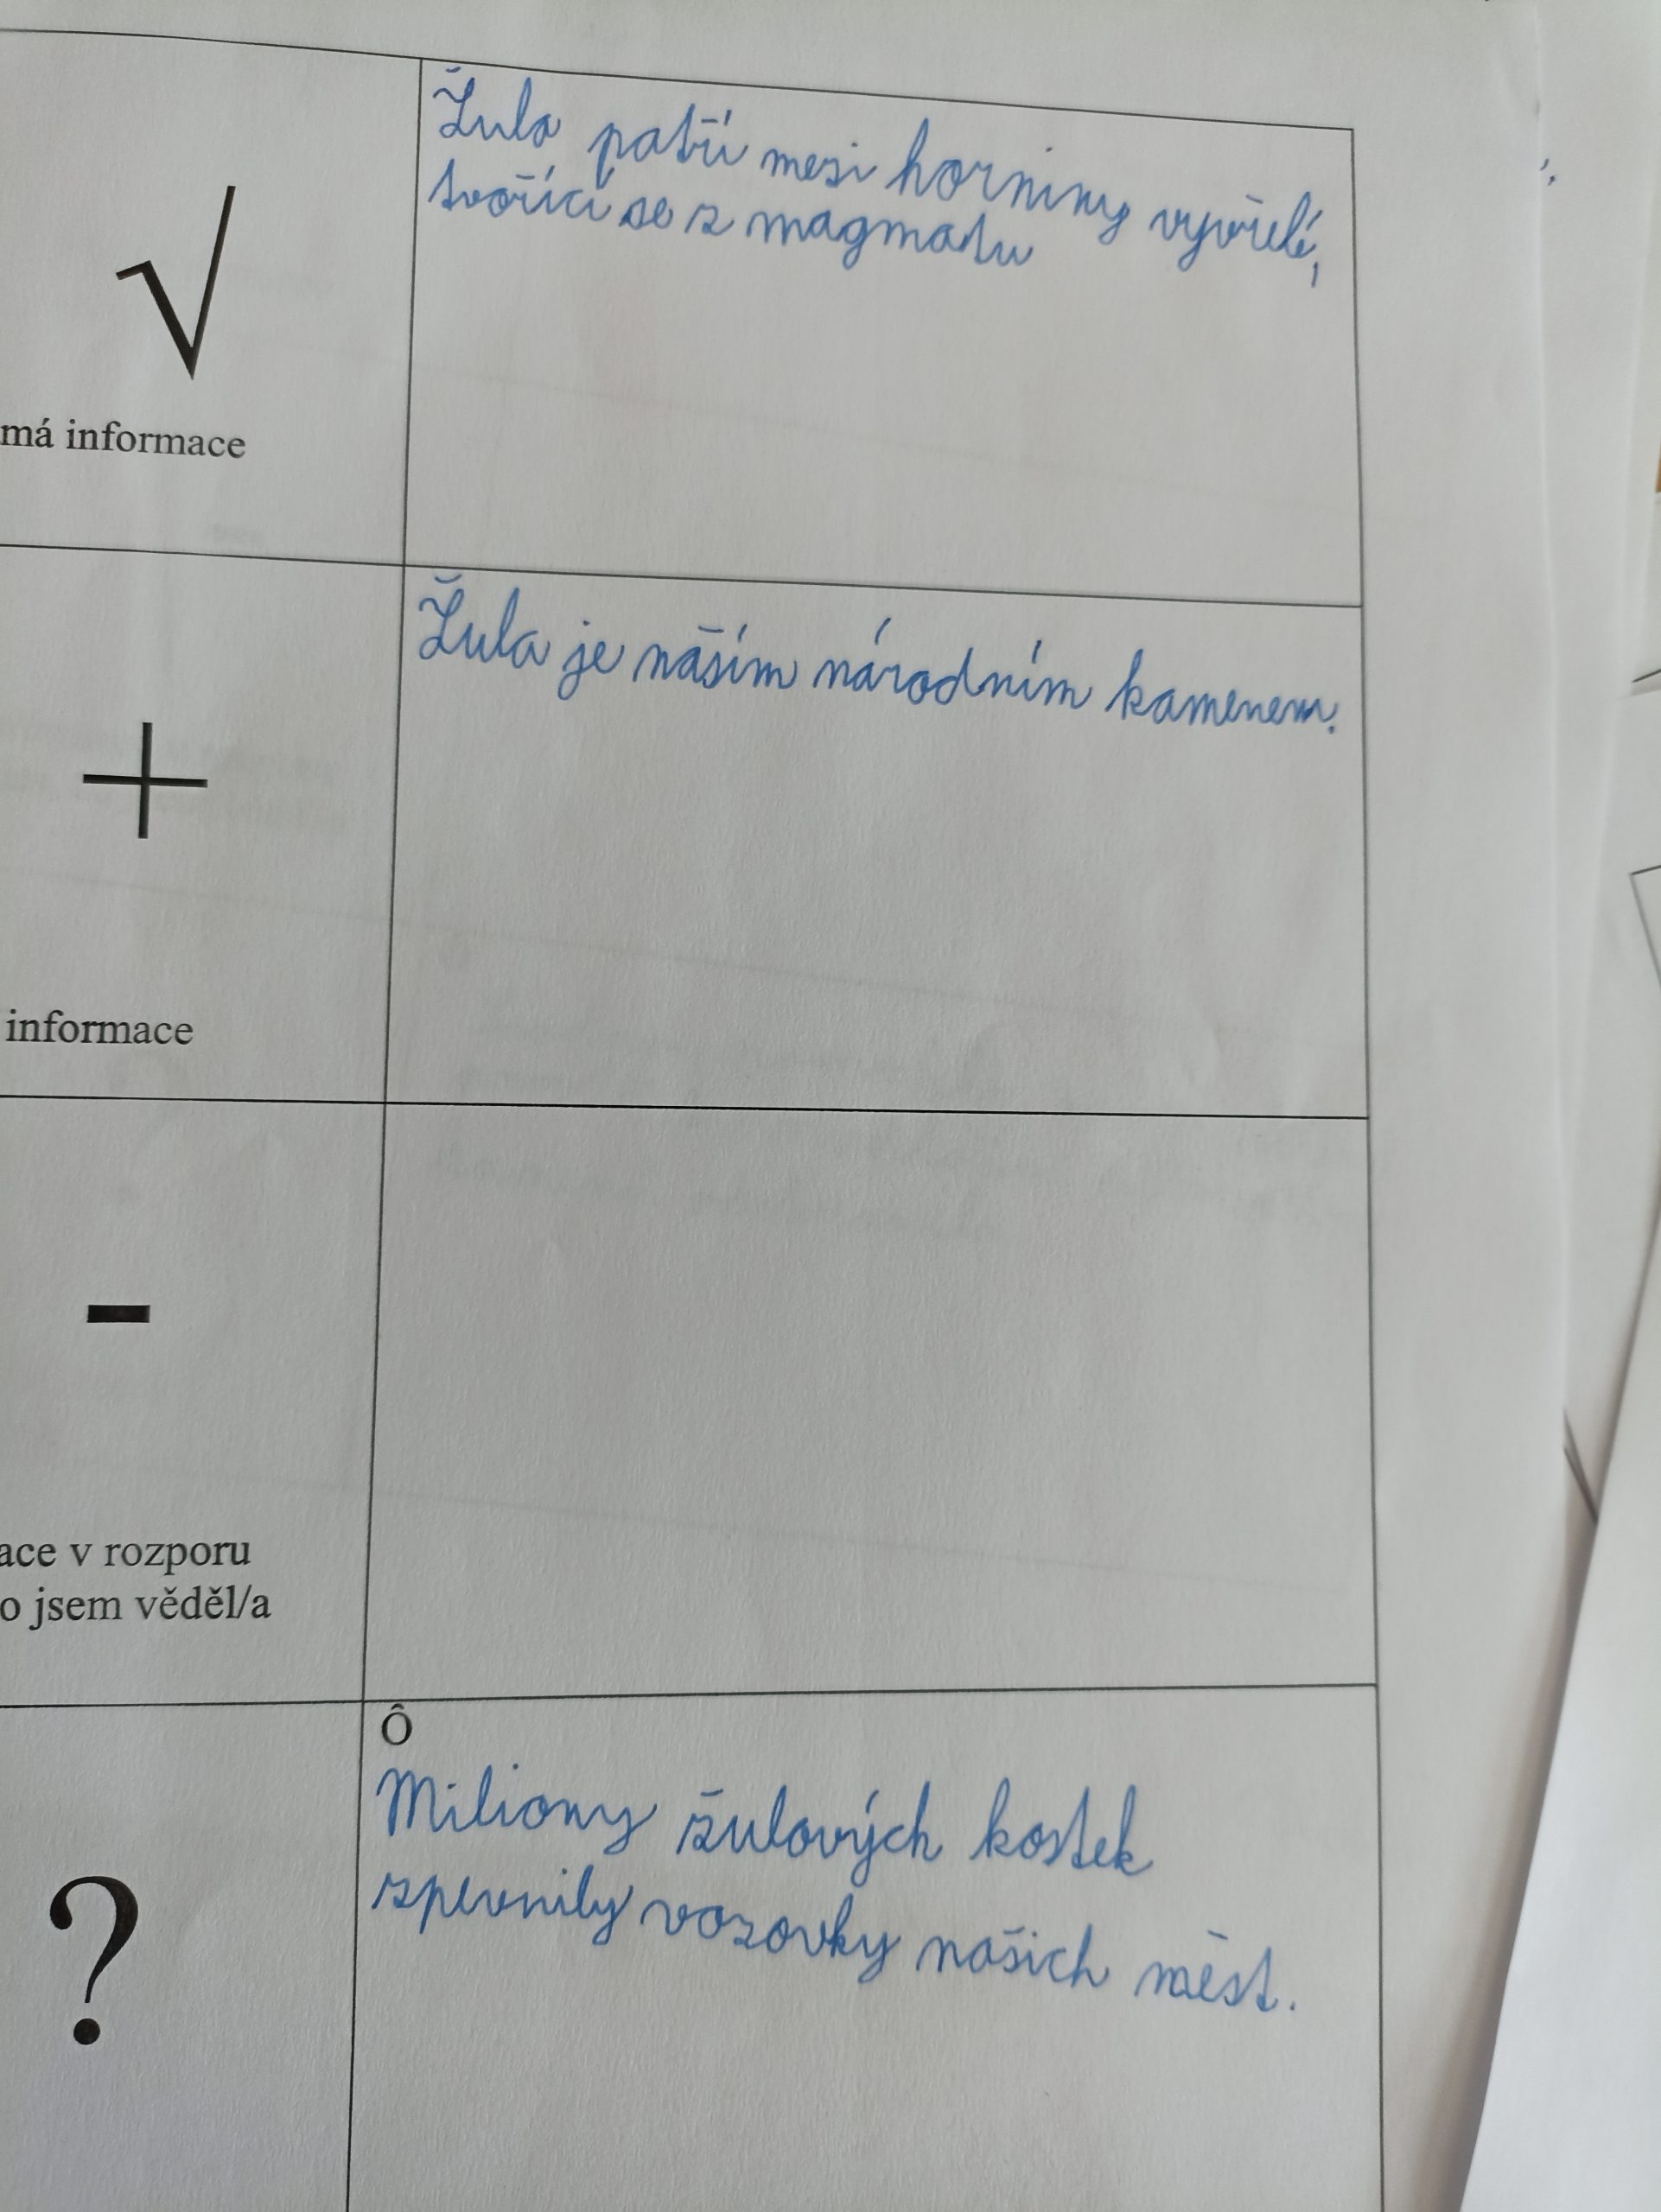 Žula patří mezi horniny vyvřelé,
tvořící se z magmatu
√
má informace
Žula je naším národním kamenem.
+
informace
-
ace v rozporu
o jsem věděl/a
Ô
Miliony žulových kostek
zpevnily vozovky našich měst.
?